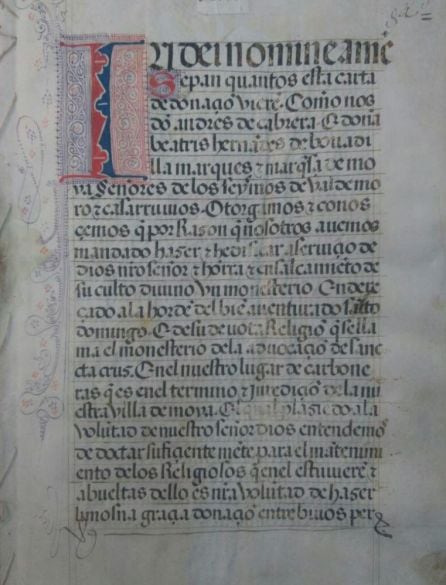 IN dei nomine amẽ
Sepan quantos esta carta
de donaçõ vierẽ. Como nos
dõ andres de cabrera. E doña
beatris hernãdes de bouadi
lla marques & marq̃sa de mo
ya señores de los seysmos de val de mo
ro & casarruuios. Otorgamos & conos
çemos q̃ por Rason q̃ nosotros auemos
mandado haser & hedificar a seruiçio de
dios nr̃o señor & hõrra & ensalcamiẽto de
su culto diuino vn monesterio. Endere
çado a la hordẽ del biẽ auenturado sãtto
domingo. E de su deuota Religiõ q̃ se lla
ma el monesterio de la aduocaçiõ de sanc
ta crus. E en el nuestro lugar de carbone
ras q̃ es en el termino & juridiçiõ de la nu
estra villa de moya. El qual plasiẽdo a la
volũtad de nuestro señor dios entendemos
de doctar sufiçente mẽte para el mantenimi
ento de los Religiosos q̃ en el estuuierẽ &
a bueltas dello es nr̃a volũtad de haser
lymosna graçia donaçiõ entre biuos per